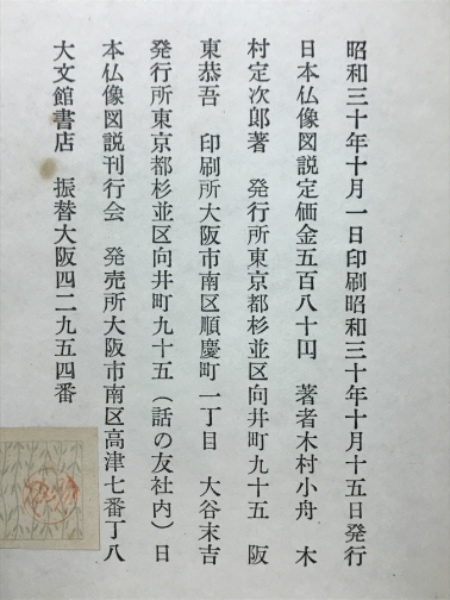 昭和三十年十月一日印刷昭和三十年十月十五日発行
日本仏像図説定価金五百八十円　著者木村小舟　木
村定次郎著　発行所東京都杉並区向井町九十五　阪
東恭吾　印刷所大阪市南区順慶町一丁目　大谷末吉
発行所東京都杉並区向井町九十五（話の友社内）日
本仏像図説刊行会　発売所大阪市南区高津七番丁八
大文館書店　振替大阪四二九五四番